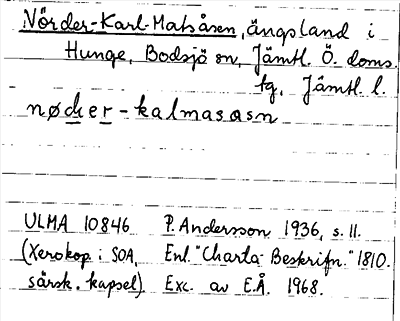 Nörder-Karl-Matsåsen, ängsland i
Hunge, Bodsjö sn, Jämtl. Ö. doms.
tg, Jämtl. l.
nøder-kalmasasn
ULMA 10846 P. Andersson 1936, s. 11.
(Xerokop. i SOA, Enl. "Charta Beskrifn." 1810.
särsk. kapsel). Exc. av E.Å. 1968.